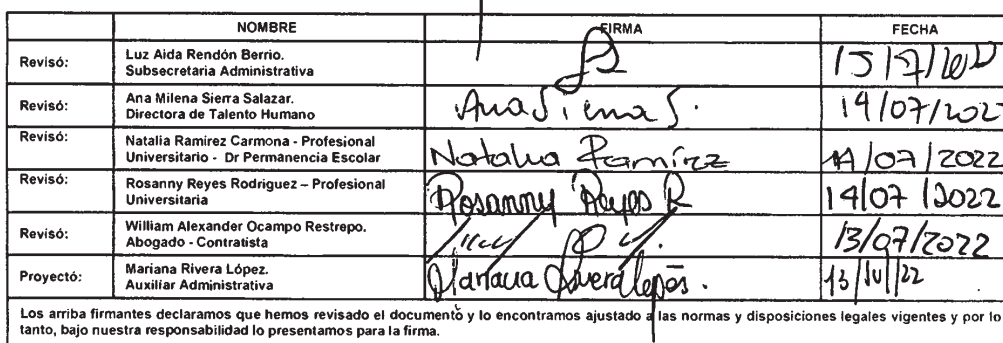 NOMBRE FIRMA FECHA
Revisó: Luz Aida Rendón Berrio.
Subsecretaria Administrativa 15/7/
Revisó: Ana Milena Sierra Salazar.
Directora de Talento Humano Ana Sierra S. 14/07/202
Revisó: Natalia Ramírez Carmona - Profesional
Universitario - Dr Permanencia Escolar Natalia Ramírez 14/07/2022
Revisó: Rosanny Reyes Rodriguez – Profesional
Universitaria Rosanny Reyes R 14/07/2022
Revisó: William Alexander Ocampo Restrepo.
Abogado - Contratista 13/07/2022
Proyectó: Mariana Rivera López.
Auxiliar Administrativa Mariana Rivera López. 13/ /22
Los arriba firmantes declaramos que hemos revisado el documento y lo encontramos ajustado a las normas y disposiciones legales vigentes y por lo
tanto, bajo nuestra responsabilidad lo presentamos para la firma.